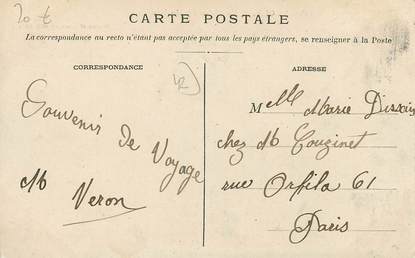 20 €
CARTE POSTALE
La correspondance au recto n'étant pas acceptée par tous les pays étrangers, se renseigner à la Poste
CORRESPONDANCE
ADRESSE
Souvenir de Voyage
M Veron
Mlle Marie
chez M Couzinet
rue Orfila 61
Paris